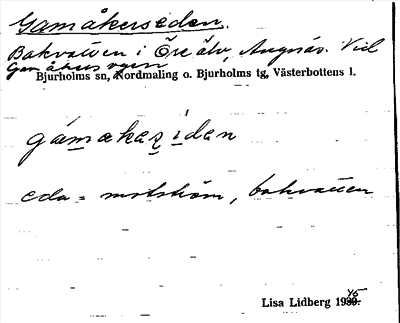 Gamåkerseden.
Bakvatten i Öre älv, Angnäs. Vid
Gamåkersvyen
Bjurholms sn, Nordmaling o. Bjurholms tg, Västerbottens l.
gámakaz̠idan
eda = motström, bakvatten
Lisa Lidberg 1945